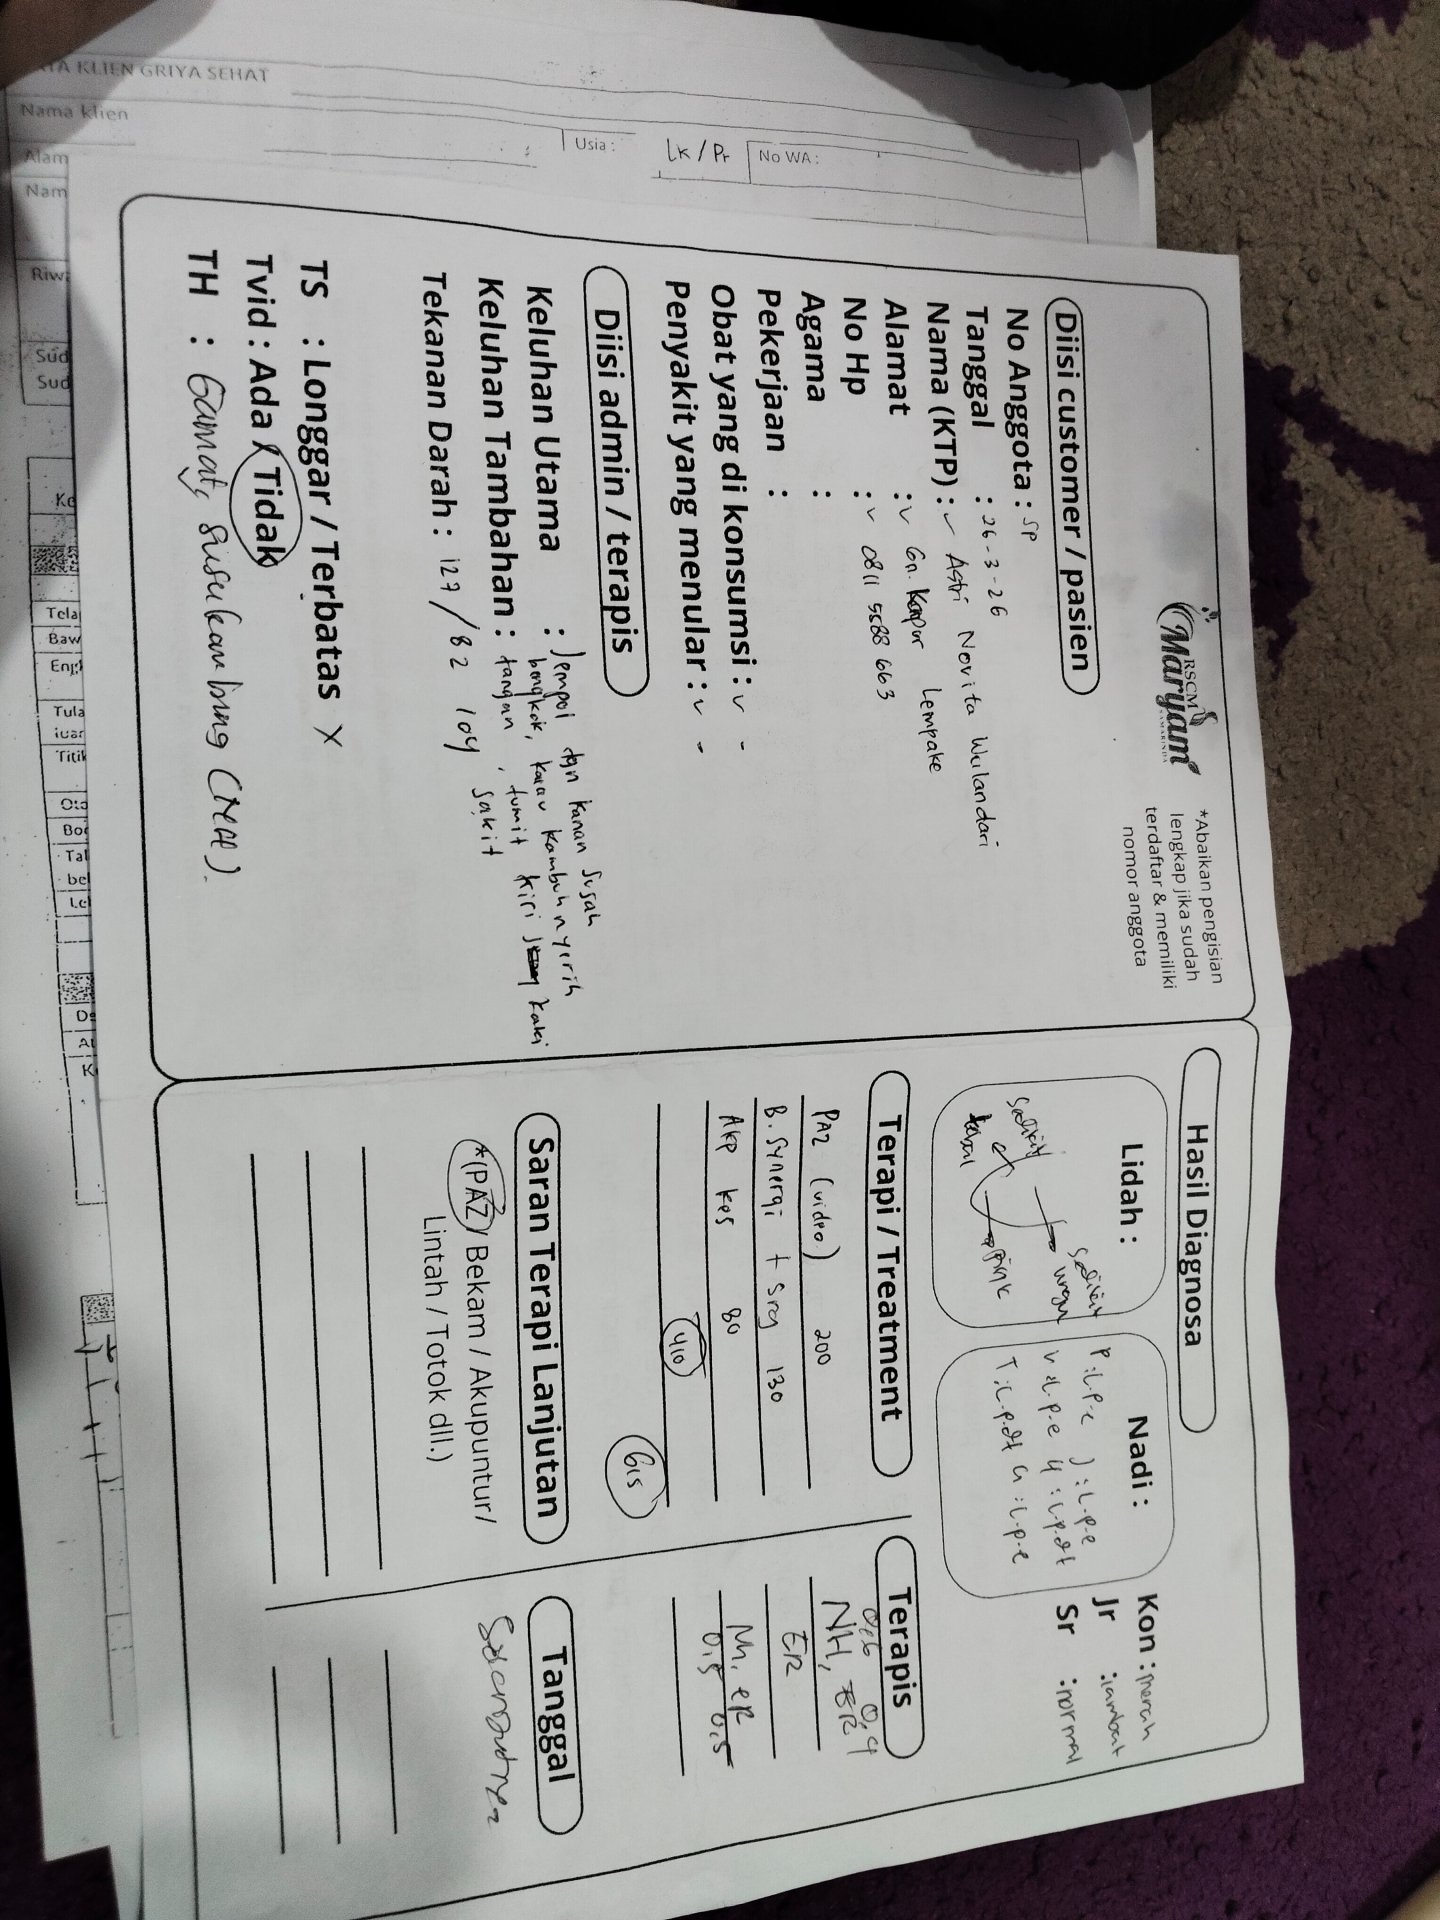 RSCM
Maryam
SAMARINDA
*Abaikan pengisian
lengkap jika sudah
terdaftar & memiliki
nomor anggota
Diisi customer / pasien
No Anggota : SP
Tanggal : 26-3-26
Nama (KTP) : Astri Novita Wulandari
Alamat : Gn. Kapur Lempake
No Hp : 0811 5588 663
Agama :
Pekerjaan :
Obat yang di konsumsi : -
Penyakit yang menular : -
Diisi admin / terapis
Keluhan Utama : Jempol tgn kanan susah
bengkok, kalau kambuh nyerih
Keluhan Tambahan : tangan, tumit kiri kaki
sakit
Tekanan Darah : 127 / 82 104
TS : Longgar / Terbatas X
Tvid : Ada / Tidak
TH : Gamat, Susu kambing
Hasil Diagnosa
Lidah :
pink
Nadi :
P : L-p-e J : L-p-e
L-p-e L-p-dt
T : L-p-dt G : L-p-e
Kon : merah
Jr : lambat
Sr : normal
Terapi / Treatment
PAZ (video) 200
B. Synergi + Srg 130
Akp kes 80
410
615
Terapis
0,6 0,4
NH, ER
ER
NH, ER
0,5 0,5
Saran Terapi Lanjutan
*(PAZ / Bekam / Akupuntur /
Lintah / Totok dll.)
Tanggal
KLIEN GRIYA SEHAT
Nama klien
Usia :
Lk / Pr
No WA :
Alam
Nam
Riwa
Sud
Sud
Tela
Baw
Tula
Titik